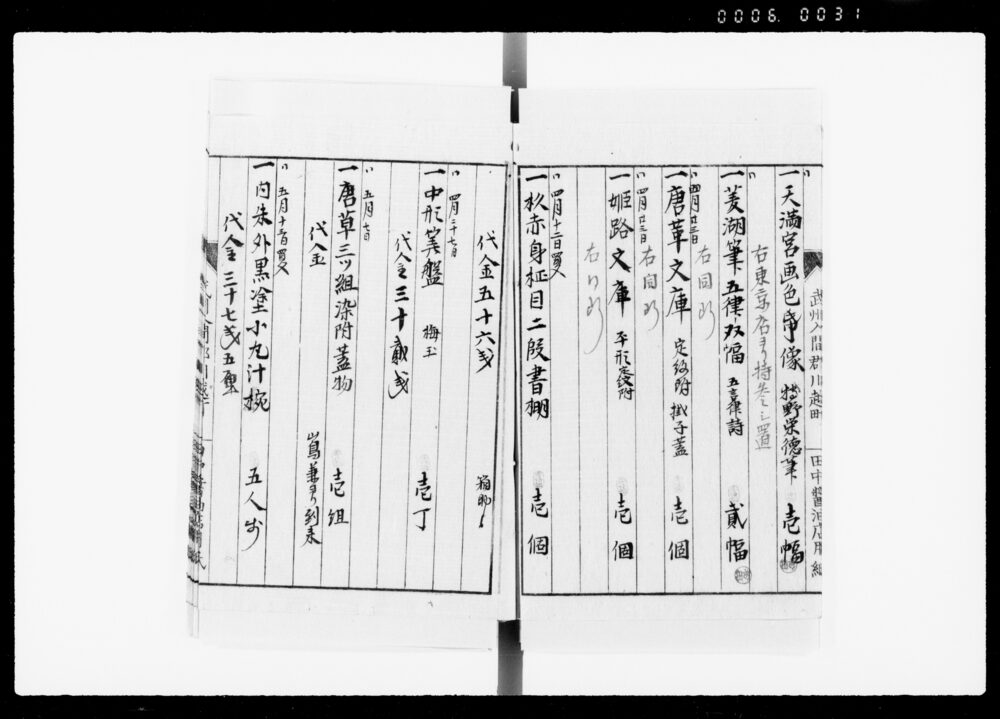 0006.0031
武州入間郡川越町 田中醤油店用紙
〃
一天満宮画色昏像 狩野栄徳筆 壱幅
右東京店ヨリ持参シ置
〃
一菱湖筆五律双幅 五言律詩 貳幅
右同断
〃 四月廿三日
一唐革文庫 定紋附 掛子蓋 壱個
右同断
〃 四月廿三日
一姫路文庫 平形定紋附 壱個
右同断
〃 四月十二日買入
一杦赤身柾目二段書棚 壱個
代金五十六戋
〃 四月二十七日
一中形算盤 梅玉 壱丁
代金三十貳戋
〃 五月七日
一唐草三ツ組染附蓋物 壱組
代金
〃 五月十二日買入
一内朱外黒塗小丸汁椀 五人前
代金三十七戋五厘